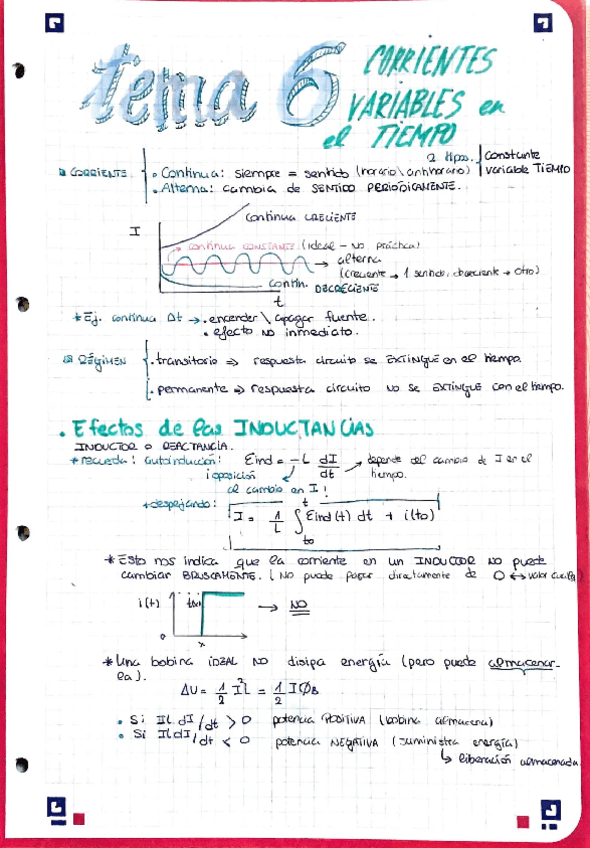 tema 6 CORRIENTES
VARIABLES en
el TIEMPO
CORRIENTE
• Continua: siempre = sentido (horario\antihorario) 2 tipos. constante
variable TIEMPO
• Alterna: cambia de SENTIDO PERIÓDICAMENTE.
I
Continua CRECIENTE
continua CONSTANTE (ideal - NO práctica)
→ alterna
(creciente → 1 sentido, decreciente → otro)
contin. DECRECIENTE
t
* Ej. continua Δt → . encender \ apagar fuente.
. efecto NO inmediato.
RÉGIMEN
. transitorio ⇒ respuesta circuito se EXTINGUE en el tiempo.
. permanente ⇒ respuesta circuito no se EXTINGUE con el tiempo.
. Efectos de las INDUCTANCIAS
INDUCTOR o REACTANCIA.
* recuerda: autoinducción: Eind = -L dI/dt → depende del cambio de I en el
tiempo.
¡oposición
al cambio en I!
* despejando:
I = 1/L ∫ t to Eind(t) dt + i(to)
* Esto nos indica que la corriente en un INDUCTOR NO puede
cambiar BRUSCAMENTE. (No puede pasar directamente de 0 ↔ valor
i(t) → NO
0
x
* Una bobina IDEAL NO disipa energía (pero puede almacenar-
la).
ΔU = 1/2 I²L = 1/2 IØB
• Si IL dI/dt > 0 potencia POSITIVA (bobina almacena)
• Si IL dI/dt < 0 potencia NEGATIVA (suministra energía)
↳ liberación almacenada